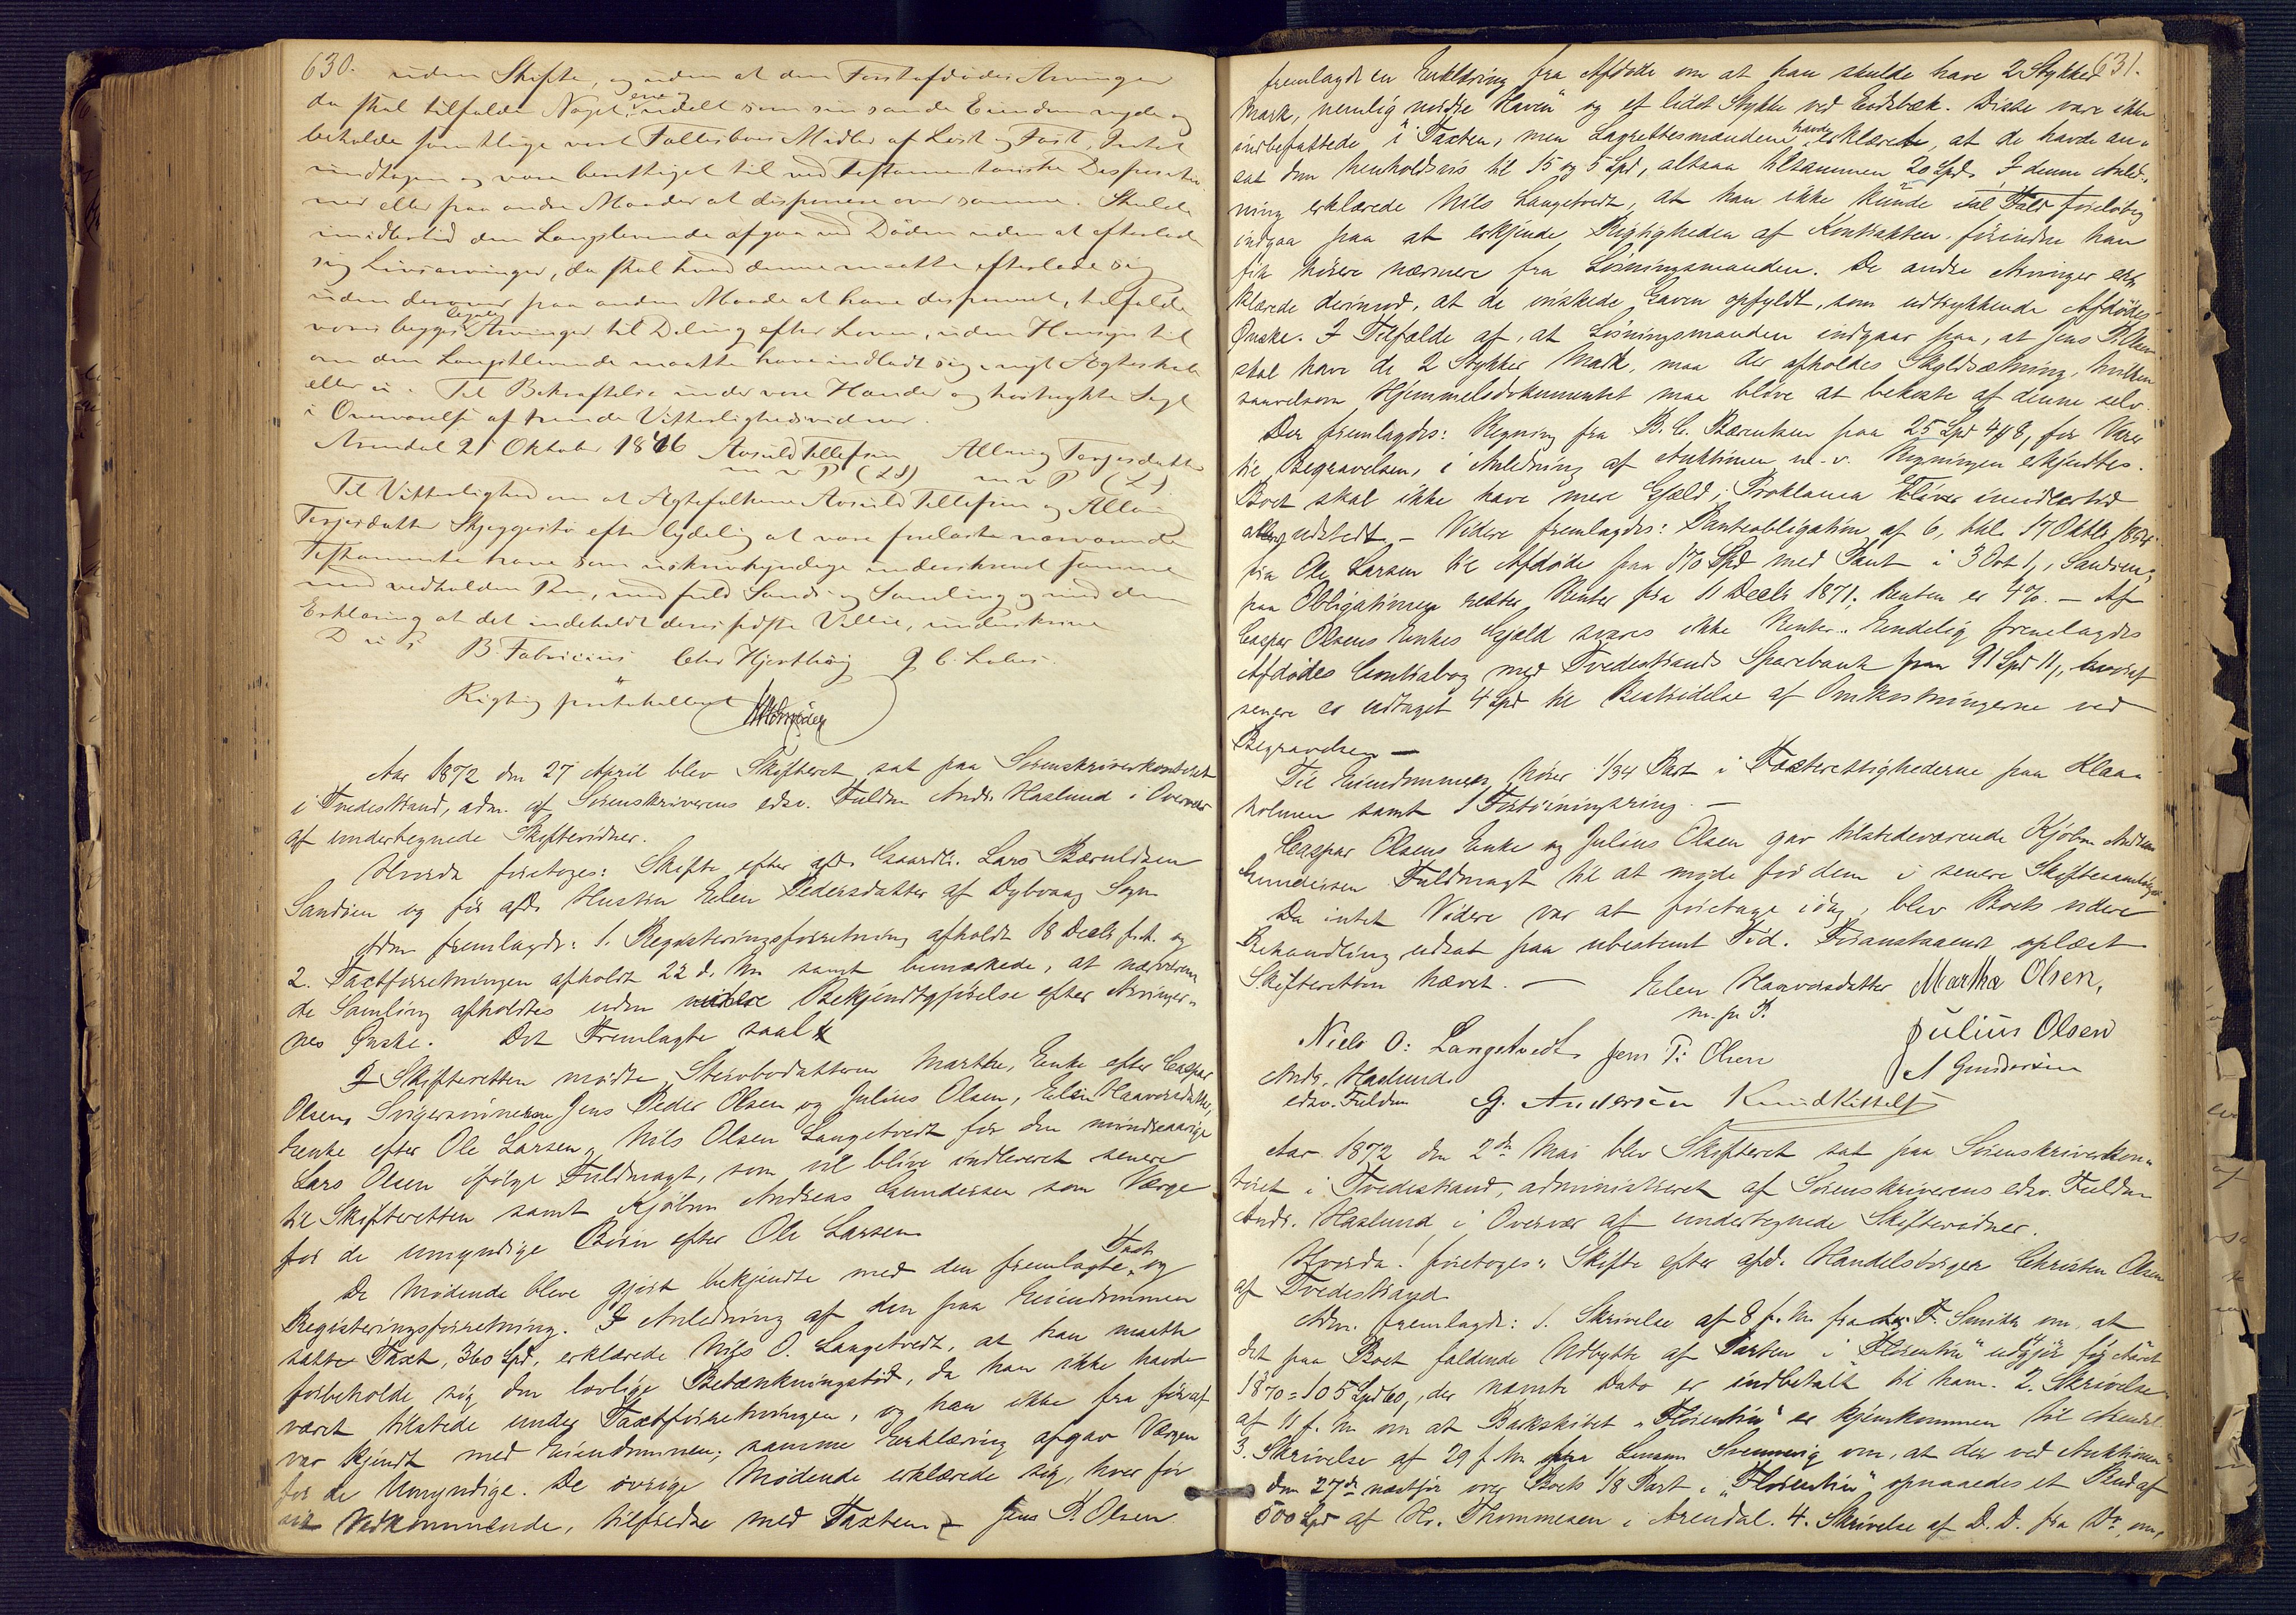 630.
uden Skifte, og uden at den Førstafdødes Arvinger
da skal tilfalde Noget, udelt som sin sande Eiendom nyde og
beholde samtlige vort Fællesboes Midler af Løst og Fast, Intet
undtagen og være berettiget til ved testamentariske Dispositio
ner eller paa andre Maader at disponere over samme. Skulde
imidlertid den Længstlevende afgaa ved Døden uden at efterlade
sig Livsarvinger, da skal hvad denne maatte efterlade sig
uden derover paa anden Maade at have disponeret, tilfalde
vores begges legale Arvinger til Deling efter Loven, uden Hensyn til
om den Længstlevende maatte have indladt sig i nyt Ægteskab
eller ei. Til Bekræftelse under vore Hænder og hostrykte Segl
i Overværelse af tvende Vitterlighedsvidner.
Arendal 21 Oktober 1846 Aosuld Tellefsen Allaug Terjesdatter
m n P (LS) m n P (LS).
Til Vitterlighed om at Ægtefolkene Aosuld Tellefsen og Allaug
Terjesdatter Skjeggestø efter lydelig at være forelæste nærværende
Testamente have som uskrivekyndige underskrevet samme
med vedholden Pen, med fuld Sands og Samling og med den
Erklæring at det indeholdt deres sidste Villie, underskrive
D u S B. Fabricius Chr Hjorthøy J. C.
Rigtig protokolleret

Aar 1872 den 27 April blev Skifteret sat paa Sorenskriverkontoret
i Tvedestrand, adm. af Sorenskriverens edsv. Fuldm Andr. Haslund i Overvær
af undertegnede Skiftevidner.
Hvorda foretoges: Skifte efter afd. Gaardb. Lars Bæruldsen
Sandøen og før afd. Hustru Elen Pedersdatter af Dybvaag Sogn
Adm fremlagde: 1. Registeringsforretning afholdt 18 Decbr f. A. og
2. Taxtforretningen afholdt 22 d. M. samt bemærkede, at nærværen
de Samling afholdtes uden videre Bekjendtgjørelse efter Arvinger-
nes Ønske. Det Fremlagte saal
I Skifteretten mødte Stervbodatteren Marthe, Enke efter Caspar
Olsen, Svigersønnerne Jens Peder Olsen og Julius Olsen, Elen Haavorsdatter,
Enke efter Ole Larsen, Nils Olsen Langetvedt for den mindreaarige
Lars Olsen ifølge Fuldmagt, som vil blive indleveret senere
til Skifteretten samt Kjøbm Andreas Gundersen som Værge
for de umyndige Børn efter Ole Larsen.
De Mødende bleve gjort bekjendte med den fremlagte Taxt og
Registeringsforretning. I Anledning af den paa Eiendommen
satte Taxt, 360 Spd, erklærede Nils O. Langetvedt, at han maatte
forbeholde sig den lovlige Betænkningstid, da han ikke havde
været tilstede under Taxtforretningen, og han ikke fra før af
var kjendt med Eiendommen; samme Erklæring afgav Værgen
for de Umyndige. De øvrige Mødende erklærede sig, hver for
sit Vedkommende, tilfredse med Taxten. Jens P. Olsen
631.
fremlagde en Erklæring fra Afdøde om at han skulde have 2 Stykker
Mark, nemlig "nordre Haven" og et lidet Stykke ved Endebæk. Disse vare ikke
indbefattede i Taxten, men Lagrettesmændene havde erklæret, at de havde an-
sat dem henholdsvis til 15 og 5 Spd, altsaa tilsammen 20 Spd. I denne Anled-
ning erklærede Nils Langetvedt, at han ikke kunde ial Fald foreløbig
indgaa paa at erkjende Rigtigheden af Kontrakten, førinden han
fik høre nærmere fra Løsningsmanden. De andre Arvinger er-
klærede derimod, at de ønskede Gaven opfyldt, som udtrykkende Afdødes
Ønske. I Tilfælde af, at Løsningsmanden indgaar paa, at Jens P. Olsen
skal have de 2 Stykker Mark, maa der afholdes Skyldsætning, hvilken
saavelsom Hjemmelsdokumentet maa blive at bekoste af denne selv.
Der fremlagdes: Regning fra B. C. Bærentsen paa 25 Spd 4 8, for Varer
til Begravelsen, i Anledning af Auktionen m. v. Regningen erkjendtes.
Boet skal ikke have mere Gjæld; Proklama bliver imidlertid
udstedt. - Videre fremlagdes: Panteobligation af 6, thl. 17 Oktbr 1854
fra Ole Larsen til Afdøde paa 170 Spd med Pant i 3 Ort 1, i Sandøen;
paa Obligationen rester Renter fra 11 Decbr 1871. Renten er 4%. - Af
Caspar Olsens Enkes Gjæld svares ikke Renter. Endelig fremlagdes
Afdødes Contrabog med Tvedestrands Sparebank paa 91 Spd 11, hvoraf
senere er udtaget 4 Spd til Bestridelse af Omkostningerne ved
Begravelsen. -
Til Eiendommen hører 1/34 Part i Fæsterettighederne paa Klaa-
holmen samt 1 Fortøiningsring. -
Caspar Olsens Enke og Julius Olsen gav tilstedeværende Kjøbm Andreas
Gundersen Fuldmagt til at møde for dem i senere Skiftesamlinger.
Da intet Videre var at foretage idag, blev Boets videre
Behandling udsat paa ubestemt Tid. Foranstaaende oplæst
Skifteretten hævet. - Elen Haavorsdatter Martha Olsen,
m. p. P.
Niels O: Langetvedt Jens P: Olsen Julius Olsen
Andr. Haslund A Gundersen
edsv. Fuldm G. Andersen Knud Kittelsen

Aar 1872 den 2den Mai blev Skifteret sat paa Sorenskriverkon-
toret i Tvedestrand, administreret af Sorenskriverens edsv. Fuldm
Andr. Haslund i Overvær af undertegnede Skiftevidner.
Hvorda! foretoges: Skifte efter afd. Handelsborger Christen Olsen
af Tvedestrand
Adm. fremlagde: 1. Skrivelse af 8 f. M. fra F. Smith om, at
det paa Boet faldende Udbytte af Parten i "Florentin" udgjør for Aaret
1870 = 105 Spd 60, der nævnte Dato er indbetalt til ham. 2. Skrivelse
af 11 f. M. om at Barkskibet "Florentin" er hjemkommen til Arendal.
3. Skrivelse af 29 f. M. fra Svennevig om, at der ved Auktionen
den 27de næstfør over Boets 1/8 Part i "Florentin" opnaaedes et Bud af
500 Spd af Hr. Thommesen i Arendal. 4. Skrivelse af D. D. fra Do, om,